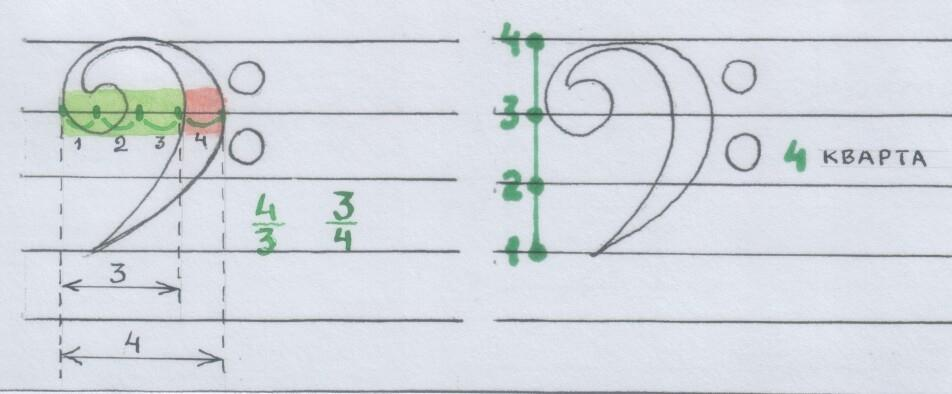 1 2 3 4
4/3 3/4
3
4
4
3
2
1
4 КВАРТА